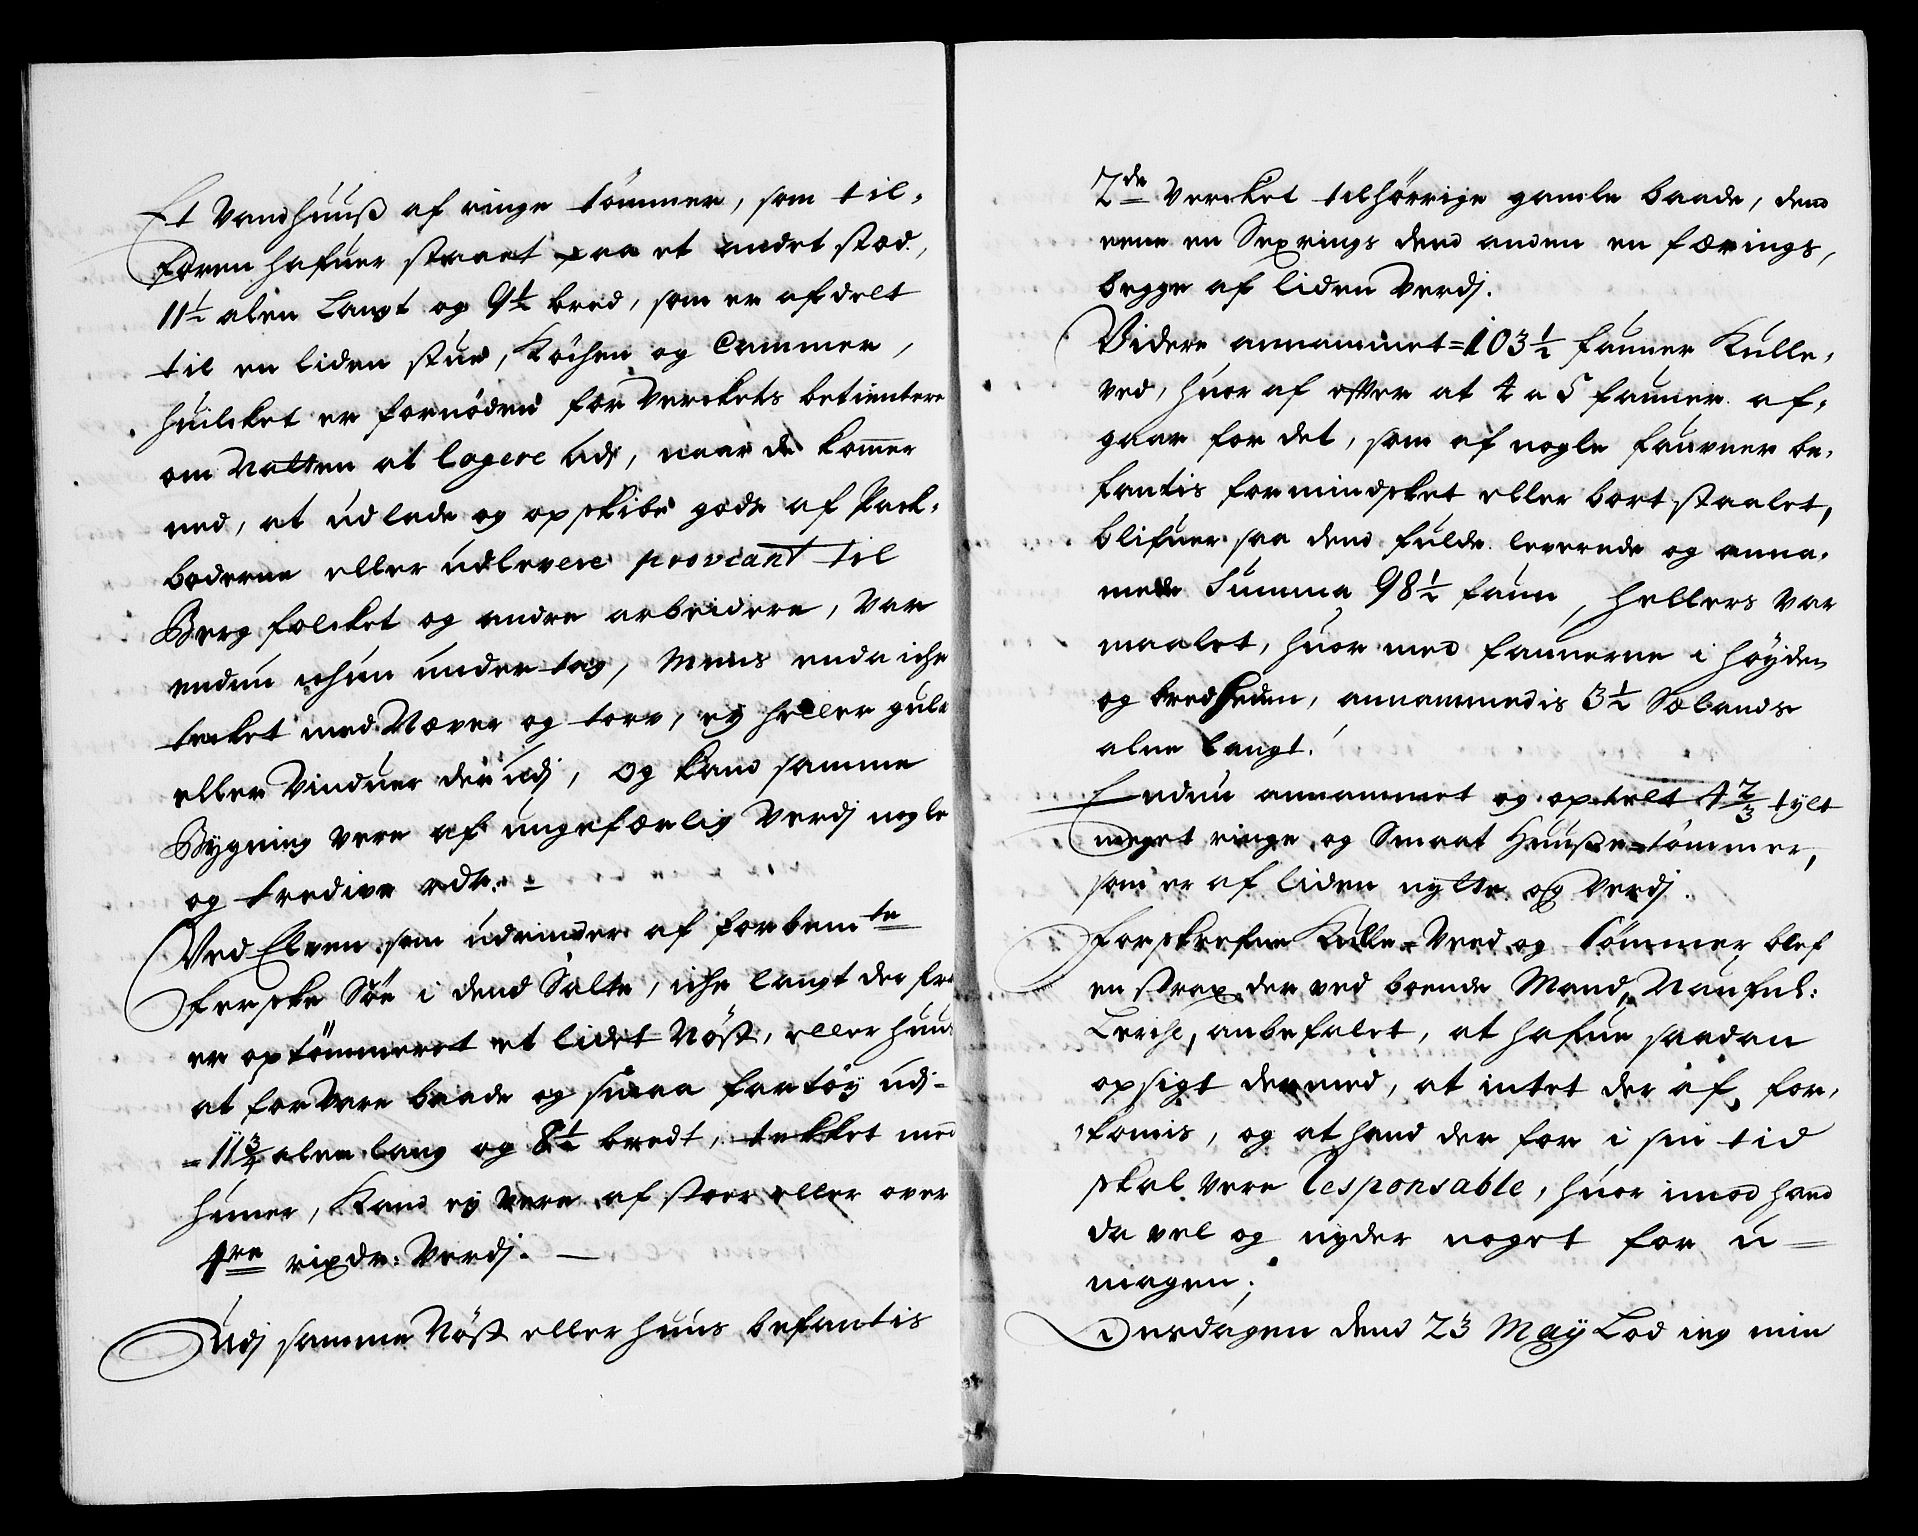 Et Vandhuuß af ringe tömmer, som til-
foren hafuer staaet paa et andet stæd,
11½ alen Langt og 9½ bred, som er afdelt
til en liden stue, Köchen og Cammer,
huilcket er fornöden for Verckets betientere
om Natten at logere udj, naar de kommer
ned, at udlade og opskibe gods af Pack-
boderne eller udlevere proviant til
Bergfolcket og andre arbeidere, Var
endnu ichun under tag, Mens enda iche
tecket med Næver og torv, ej heller gulf
eller Vinduer der udj, og kand samme
Bygning vere af ungefærlig Verdj nogle
og tredive rdr. -
Ved Elven som udrinder af forbemte
ferske Söe i dend Salte, iche langt der fra
er optömmeret et lidet Nöst, eller huus
at forvare baade og smaa fartöy udj-
= 11¾ alen lang og 8½ bredt, tekket med
huner, Kand ey vere af stoer eller over
4re rixdr: Verdj. —
Udj samme Nöst eller huus befantis
2de Vercket tilhörrige gamle baade, dend
eene en Sexrings dend anden en færings,
begge af liden Verdj.
Videre annammet = 103½ faune Kulle-
ved, huor af efter at 4 a 5 fauner af-
gaar for det, som af nogle faufner be-
fantis formindsket eller bort staalet,
blifuer saa dend fulde leverede og anna-
mede Summa 98½ faun, hellers var
maalet, huor med faunerne i höyden
og bredheden, annammedis 3½ Sælands
alne langt.
Endnu annammet og optelt 4⅔ tylt
meget ringe og Smaat Huuße-tömmer,
som er af liden nytte og Verdj.
forskrefne Kulle-Veed og Tömmer blef
en strax der ved boende Mand,
Lerche, anbefalet, at hafue saadan
opsigt dermed, at intet der af for-
komis, og at hand der for i sin tid
skal vere Responsable, huor imod hand
da vel og nyder noget for u-
magen.
Onsdagen dend 23 Maÿ Lod ieg min